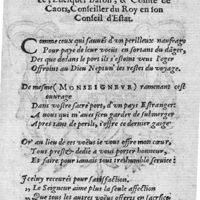 & Euesque, Baron, & Comte de
Caors, Conseiller du Roy en son
Conseil d'Estat.
Comme ceux qui sauués d'vn perilleux naufrage
Pour paye de leur voeus en sortant du dãger,
Des que dedans le port ils s'estoint veus loger
Offroint au Dieu Neptun' les restes du voyage.
De mesme (MONSEIGNEUR) ramenant cest
ouurage
Dans vostre sacré port, d'vn païs Estranger:
A nous qui m'aués seu garder de submerger
Apres tans de perils, i'offre ce dernier gaige
Or au lieu de cet voeus ie vous offre mon coeur,
Tout prest à vous porter honneur,
Et faire pour iamais tout treshumble seruice:
Iceluy receurés pour satisfaction,
„ Le Seigneur aime plus la seule affection
„ Que tous les autres voeus offerts en sacrifice